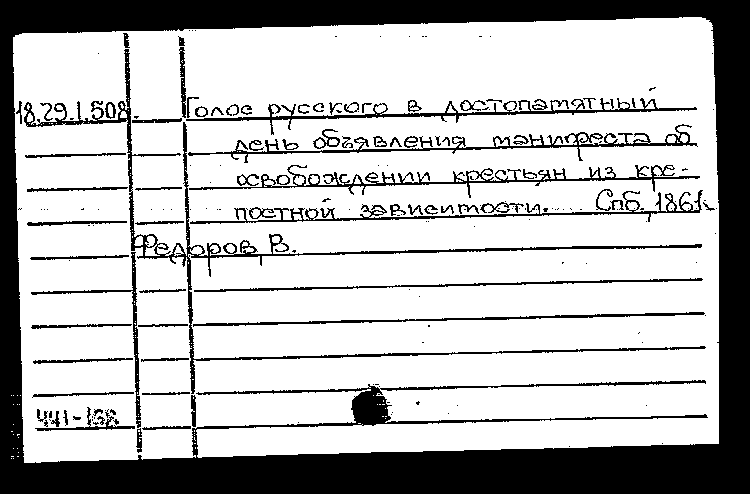 18.29.1.508. Голос русского в достопамятный
день объявления манифеста об
освобождении крестьян из кре-
постной зависимости. Спб, 1861.
Федоров, В.
441-168